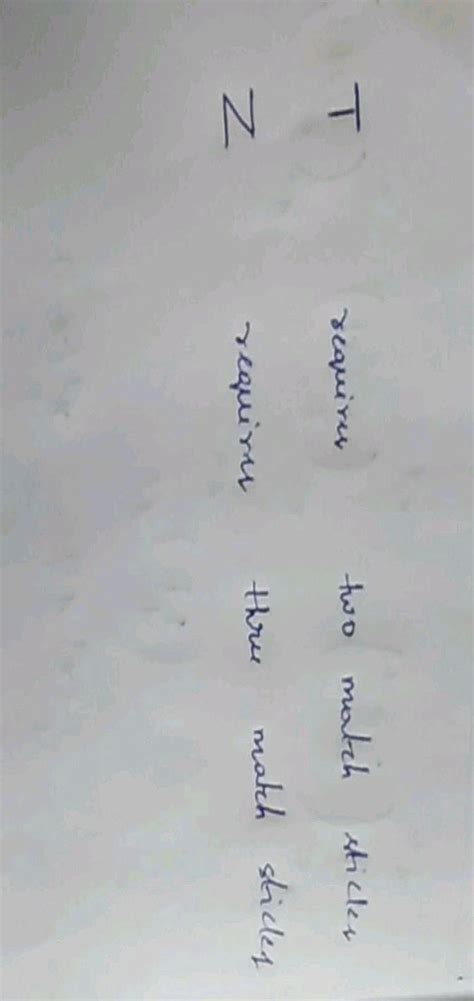 T requires two match sticks
Z requires three match sticks